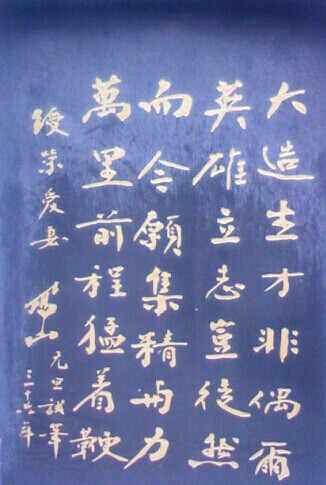 大造生才非偶爾
英雄立志豈徒然
而今願集精與力
萬里前程猛着鞭
綬榮愛
山
元旦試筆
三十六年